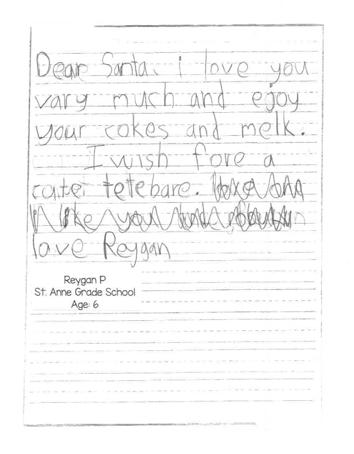 Dear Santa. i love you
vary much and ejoy
your cokes and melk.
I wish fore a
cutei tetebare.
love Reygan
Reygan P
St. Anne Grade School
Age: 6